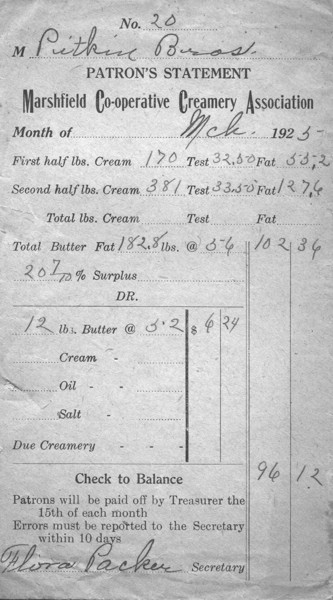 No. 20
M Pitkin Bros.
PATRON'S STATEMENT
Marshfield Co-operative Creamery Association
Month of Mch. 1925
First half lbs. Cream 170 Test 32.50 Fat 55,2
Second half lbs. Cream 381 Test 33.50 Fat 127,6
Total lbs. Cream Test Fat
Total Butter Fat 182.8 lbs. @ 56 102 36
20% % Surplus
DR.
12 lbs. Butter @ 5.2 $ 6 24
Cream -
Oil - -
Salt - -
Due Creamery - -
96 12
Check to Balance
Patrons will be paid off by Treasurer the
15th of each month
Errors must be reported to the Secretary
within 10 days
Flora Packer Secretary